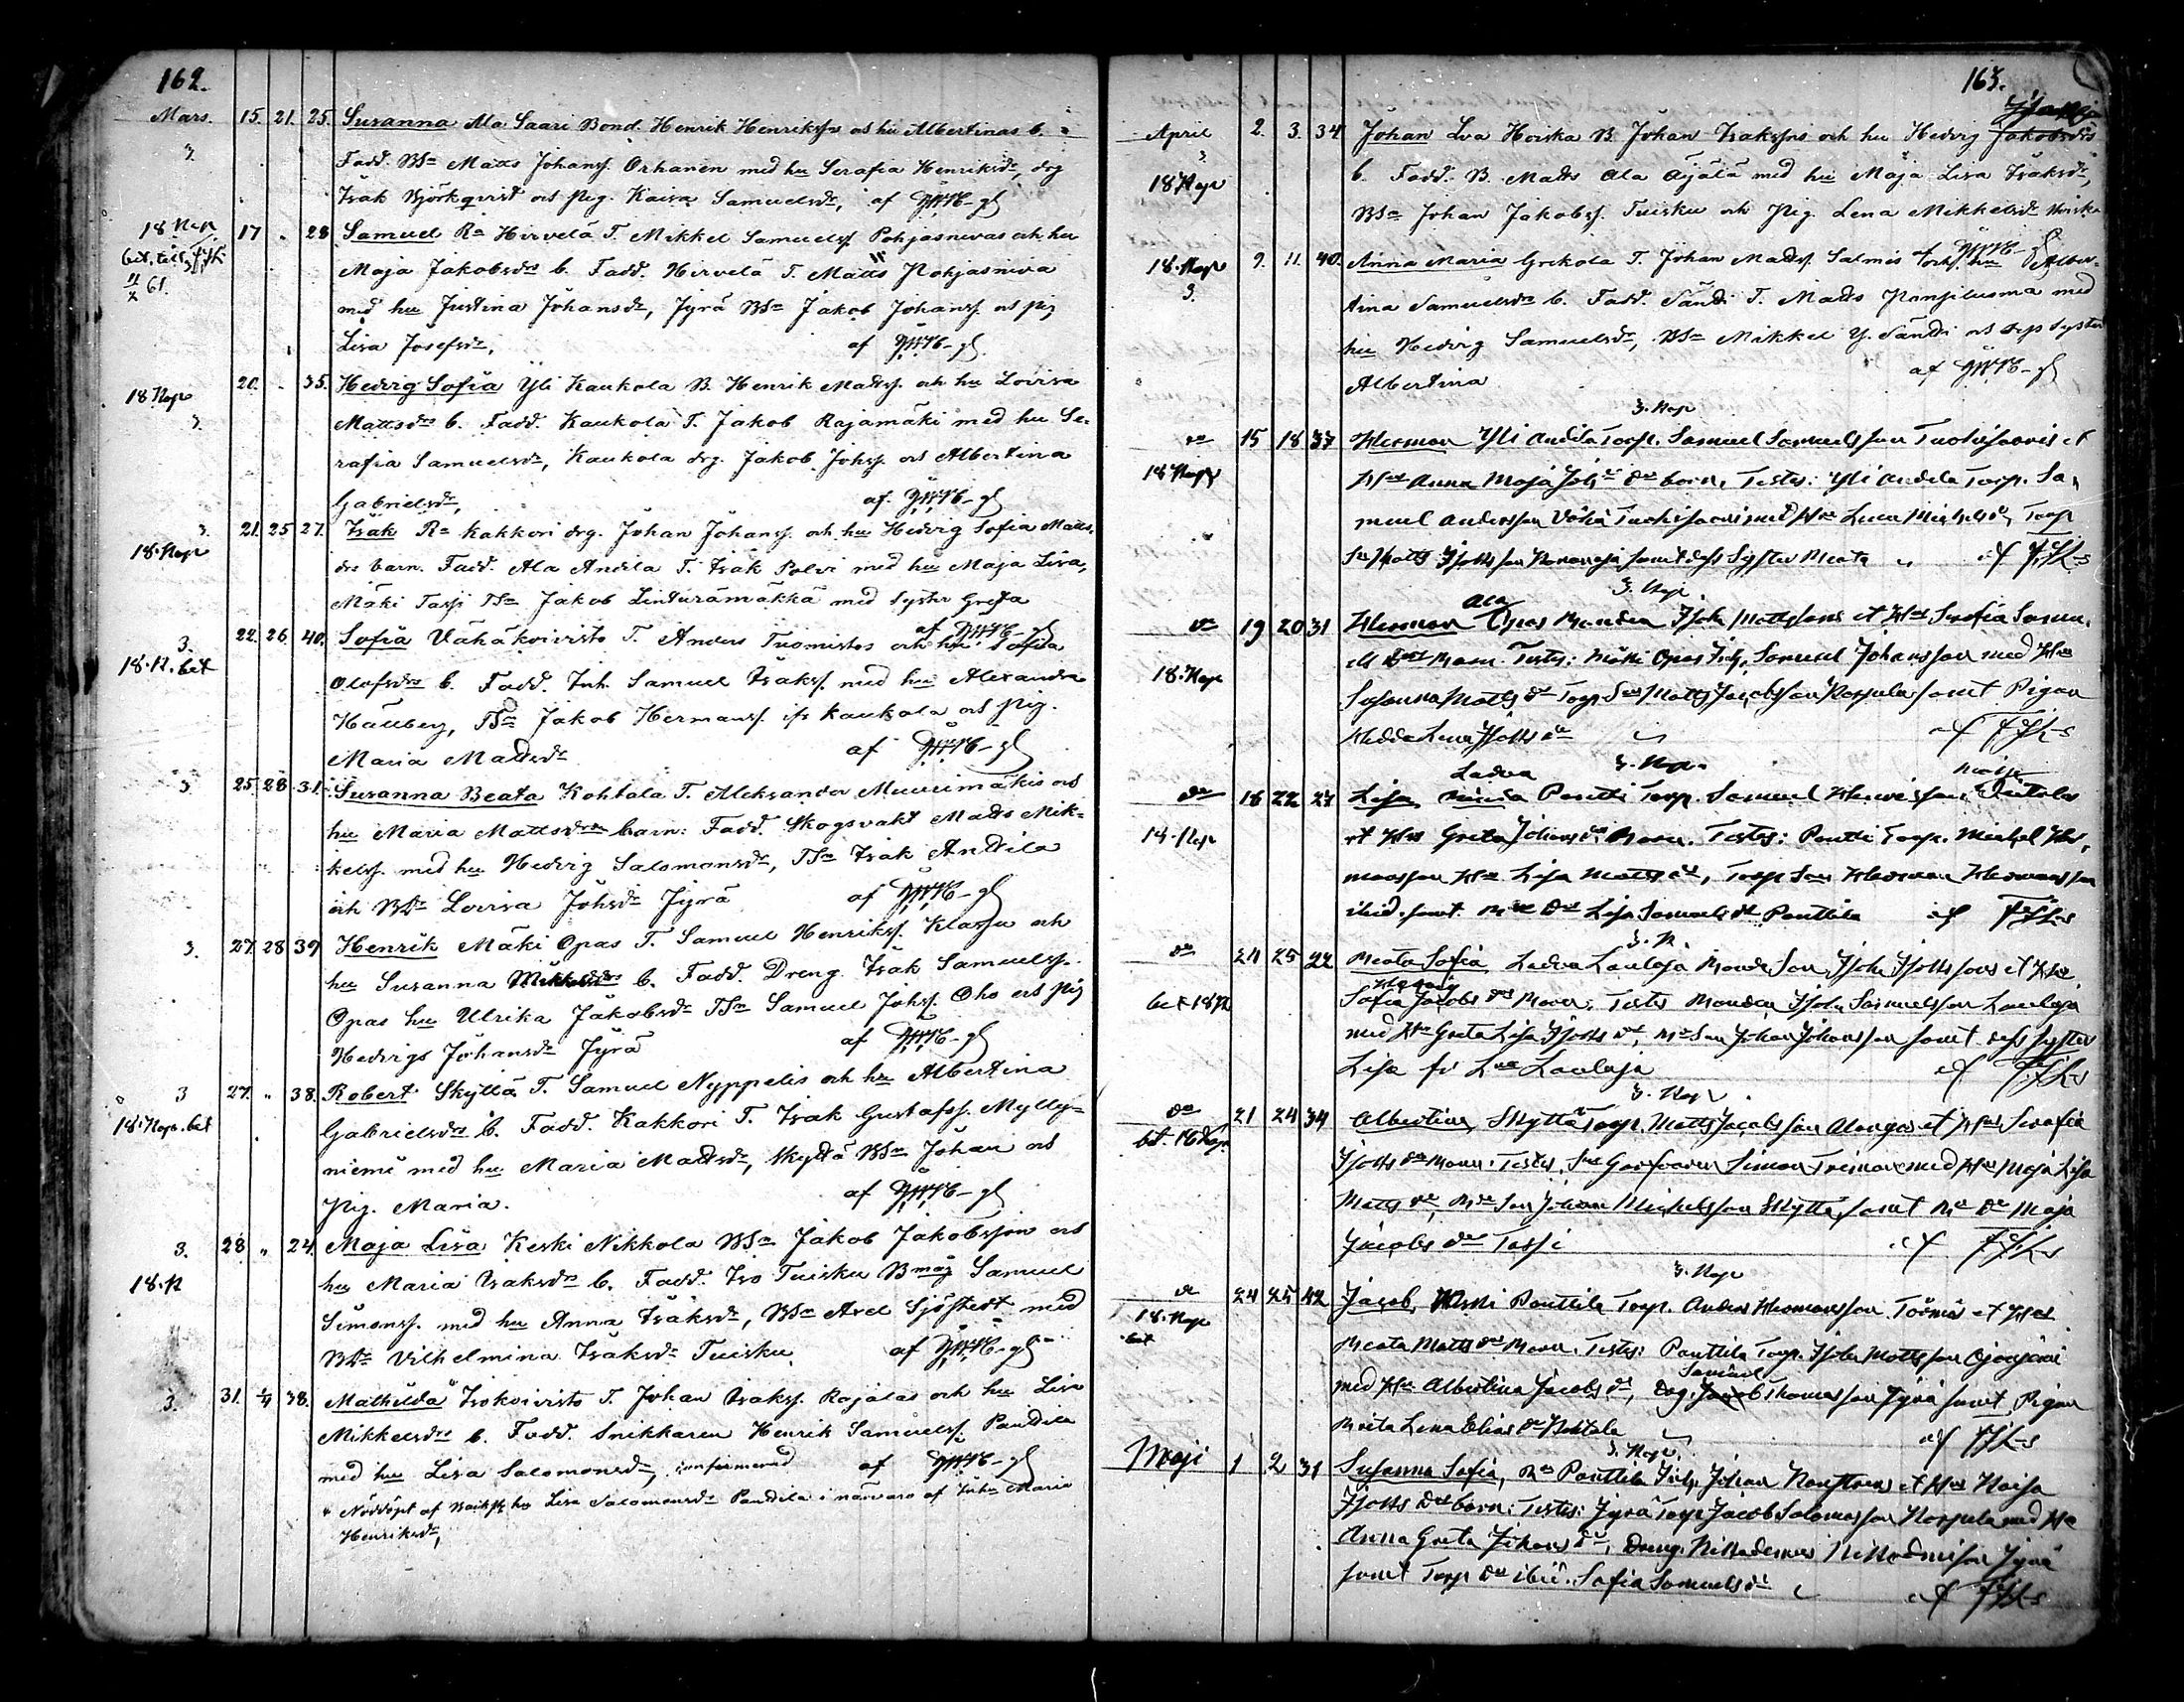 162.
Mars. 15. 21. 25. Susanna Ala Saari Bond. Henrik Henrikss. och hu Albertinas b.
3. Fadd. BSn Matts Johanss. Orhanen med hu Serafia Henriksdr, drg
Isak Björkqvist och pig. Kaisa Samuelsdr, af
18 Kop 17 „ 28 Samuel Ra Hirvelä T. Mikkel Samuelss. Pohjasnivas och hu
Maja Jakobsdrs b. Fadd. Hirvelä T. Matts Pohjasniva
61. med hu Justina Johansdr, Jyrä BSn Jakob Johanss. och pig
Lisa Josefsdr, af
18 Kop 20. „ 35. Hedvig Sofia Yli Kaukola B. Henrik Mattss. och hu Lovisa
3. Mattsdrs b. Fadd. Kaukola T. Jakob Rajamäki med hu Se-
rafia Samuelsdr, Kaukola drg. Jakob Johss. och Albertina
Gabrielsdr, af
3. 21. 25 27. Isak Ra Kakkori drg. Johan Johanss. och hu Hedvig Sofia Matts-
18. Kop drs barn. Fadd. Ala Andila T. Isak Polvi med hu Maja Lisa,
Mäki Tassi TSn Jakob Linturämäkkä med syster Greta
af
3. 22. 26. 40. Sofia Vähäkoivisto T. Anders Tuomistos och hu Sofia
18. K. bet Olofsdrs b. Fadd. Inh. Samuel Isakss. med hu Alexandra
Hällberg, TSn Jakob Hermanss. ifr Kaukola och pig.
Maria Mattsdr af
3 25. 28. 31. Susanna Beata Kohtala T. Aleksander Muurimäkis och
hu Maria Mattsdrs barn: Fadd. Skogsvakt Matts Mik-
kelss. med hu Hedvig Salomonsdr, TSn Isak Andila
och BDr Lovisa Johsdr Jyrä af
3. 27. 28 39 Henrik Mäki Opas T. Samuel Henrikss. Klassu och
hu Susanna b. Fadd. Dreng. Isak Samuelss.
Opas hu Ulrika Jakobsdr TSn Samuel Johss. Oho och pig
Hedvigs Johansdr Jyrä af
3 27. „ 38. Robert Skyttä T. Samuel Nyppelis och hu Albertina
18. Kop. bet Gabrielsdrs b. Fadd. Kakkori T. Isak Gustafss. Mylly-
niemi med hu Maria Mattsdr, Skyttä BSn Johan och
Pig. Maria. af
3. 28 „ 24. Maja Lisa Keski Nikkola BSn Jakob Jakobsson och
18. K hu Maria Isaksdrs b. Fadd. Iso Tuisku Bmåg Samuel
Simonss. med hu Anna Isaksdr, BSn Axel Sjöstedt med
BDr Vilhelmina Isaksdr Tuisku. af
3. 31. 1/4 38. Mathilda Isokoivisto T. Johan Isakss. Rajalas och hu Lisa
Mikkelsdrs b. Fadd. Snikkaren Henrik Samuelss. Panttila
med hu Lisa Salomonsdr, confirmerad af
Nöddöpt af hu Lisa Salomonsdr Panttila i närvaro af Inh. Maria
Henriksdr,
163.
April 2. 3. 34 Johan Lva Hoiska B. Johan Isakssons och hu Hedvig Jakobsdrs
3
18 Kop b. Fadd. B. Matts Ala Äijälä med hu Maja Lisa Isaksdr,
BSn Johan Jakobss. Tuisku och pig. Lena Mikkelsdr Hoiska
af
18. Kop 9. 11. 40. Anna Maria Grekola T. Johan Mattss. Salmis och hu Alber-
3. tina Samuelsdr b. Fadd. Säntti T. Matts Panjilusma med
hu Hedvig Samuelsdr, BSn Mikkel Y. Säntti och dess syster
Albertina af
3. Kop
do 15 18 37 Herman Yli Andila Torp. Samuel Samuelsson Tuohisaaris et
18 Kop Hus Anna Maja Johs drs barn. Testes: Yli Andila Torp. Sa-
muel Andersson Vähä Tuohisaari med Hu Lena Michelsdr, Torp
Sn Matts samt dess Syster Beata af
3. Kop.
Ala
do 19 20 31 Herman Opas Bonden Isak Mattssons et Hus Serafia Samu-
els Drs Barn. Testes: Mäki Opas Inh. Samuel Johansson med Hu
18. Kop Susanna Matts dr Torp Sn Matts Jacobsson Koppula samt Pigan
Hedda Lena Isaks dr af
3. Kop.
Ladva
do 16 22 27 Lisa Pentti Torp. Samuel
14. Kop et Hus Greta Johans drs Barn. Testes: Pentti Torp. Michel Her-
mansson Hu Lisa Matts dr, Torp Sn Herman Hermansson
ibid. samt Dr Lisa Samuels dr Panttila af
3. K.
do 24 25 22 Beata Sofia Ladva Laulaja Bonde Son Isak Isakssons et Hus
Hedvig
bet 18 K Sofia Jacobs drs Barn. Testes Bonden Isak Samuelsson Laulaja
med Hu Greta Lisa Isaks dr, Bde Son Johan Johansson samt dess syster
Lisa fr Lva Laulaja af
3. Kop.
do 21 24 34 Albertina Skyttä Torp. Matts Jacobsson Alanga et Hus Serafia
bet. 18 Kop. Isaks drs Barn. Testes, Simon med Hu Maja Lisa
Matts dr, Bde Son Johan Michelsson Skyttä samt Bde Dr Maja
Jacobs dr Tassi af
3. Kop
do 24 25 42 Jacob, Keski Panttila Torp. Anders Hermansson Törmä et Hus
18. Kop
bet Beata Matts drs Barn. Testes: Panttila Torp. Isak Mattsson Ojanperä
Samuel
med Hu Albertina Jacobs dr, Drg. Jacob Thomasson Jyrä samt Pigan
Brita Lena Elias dr Kohtala af
3. Kop.
Maji 1 2 31 Susanna Sofia, Ra Panttila Inh. Johan et Hus Kaisa
Isaks Drs barn: Testes: Jyrä Torp Jacob Salomonsson Koppula med Hu
Anna Greta Johans dr, Dreng. Nikodemus Nikodemusson Jyrä
samt Torp Dr ibid. Sofia Samuels dr af